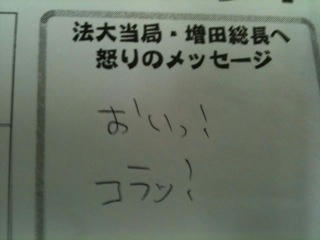 法大当局・増田総長へ
怒りのメッセージ
おいっ!
コラッ!